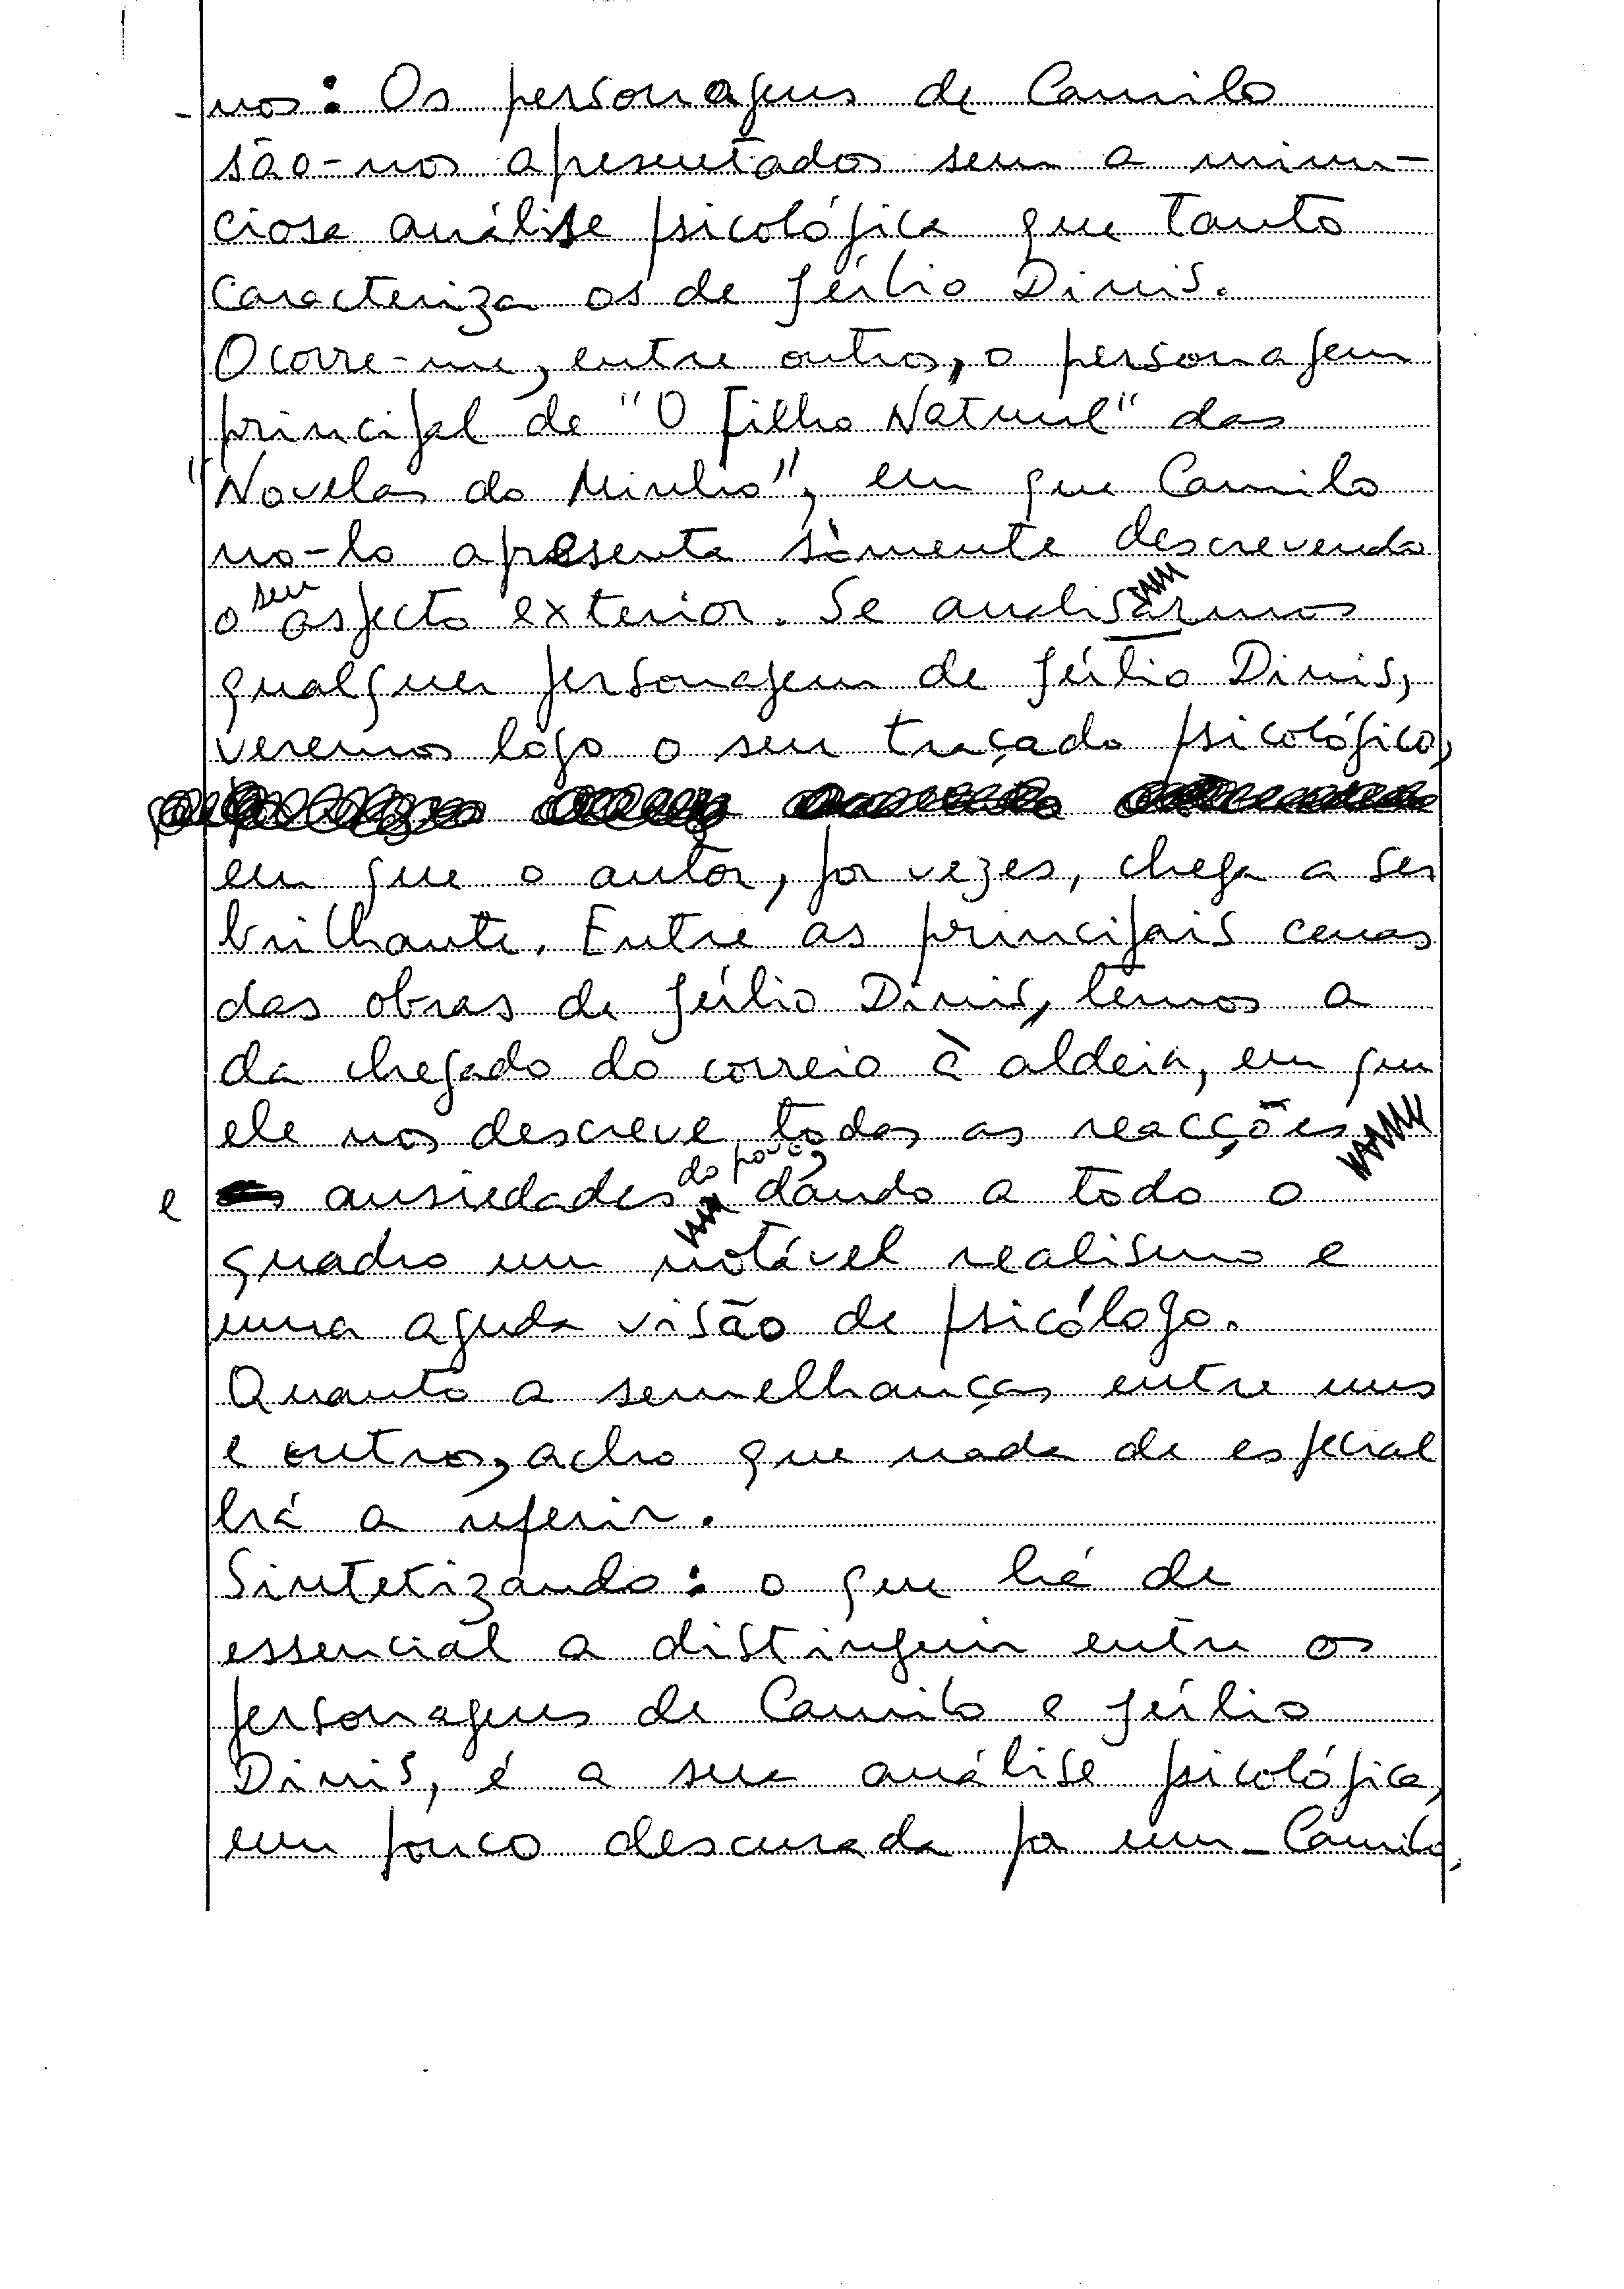 -nos: Os personagens de Camilo
são-nos apresentados sem a minu-
ciosa análise psicológica que tanto
caracteriza os de Júlio Dinis.
Ocorre-me, entre outros, o personagem
principal de "O Filho Natural" das
"Novelas do Minho", em que Camilo
no-lo apresenta sòmente descrevendo
o seu aspecto exterior. Se analisarmos
qualquer personagem de Júlio Dinis,
veremos logo o seu traçado psicológico,
em que o autor, por vezes, chega a ser
brilhante. Entre as principais cenas
das obras de Júlio Dinis, temos a
da chegada do correio à aldeia, em que
ele nos descreve todas as reacções
e ansiedades do povo, dando a todo o
quadro um notável realismo e
uma aguda visão de psicólogo.
Quanto a semelhanças entre uns
e outros, acho que nada de especial
há a referir.
Sintetizando: o que há de
essencial a distinguir entre os
personagens de Camilo e Júlio
Dinis, é a sua análise psicológica,
um pouco descurada por um - Camilo,